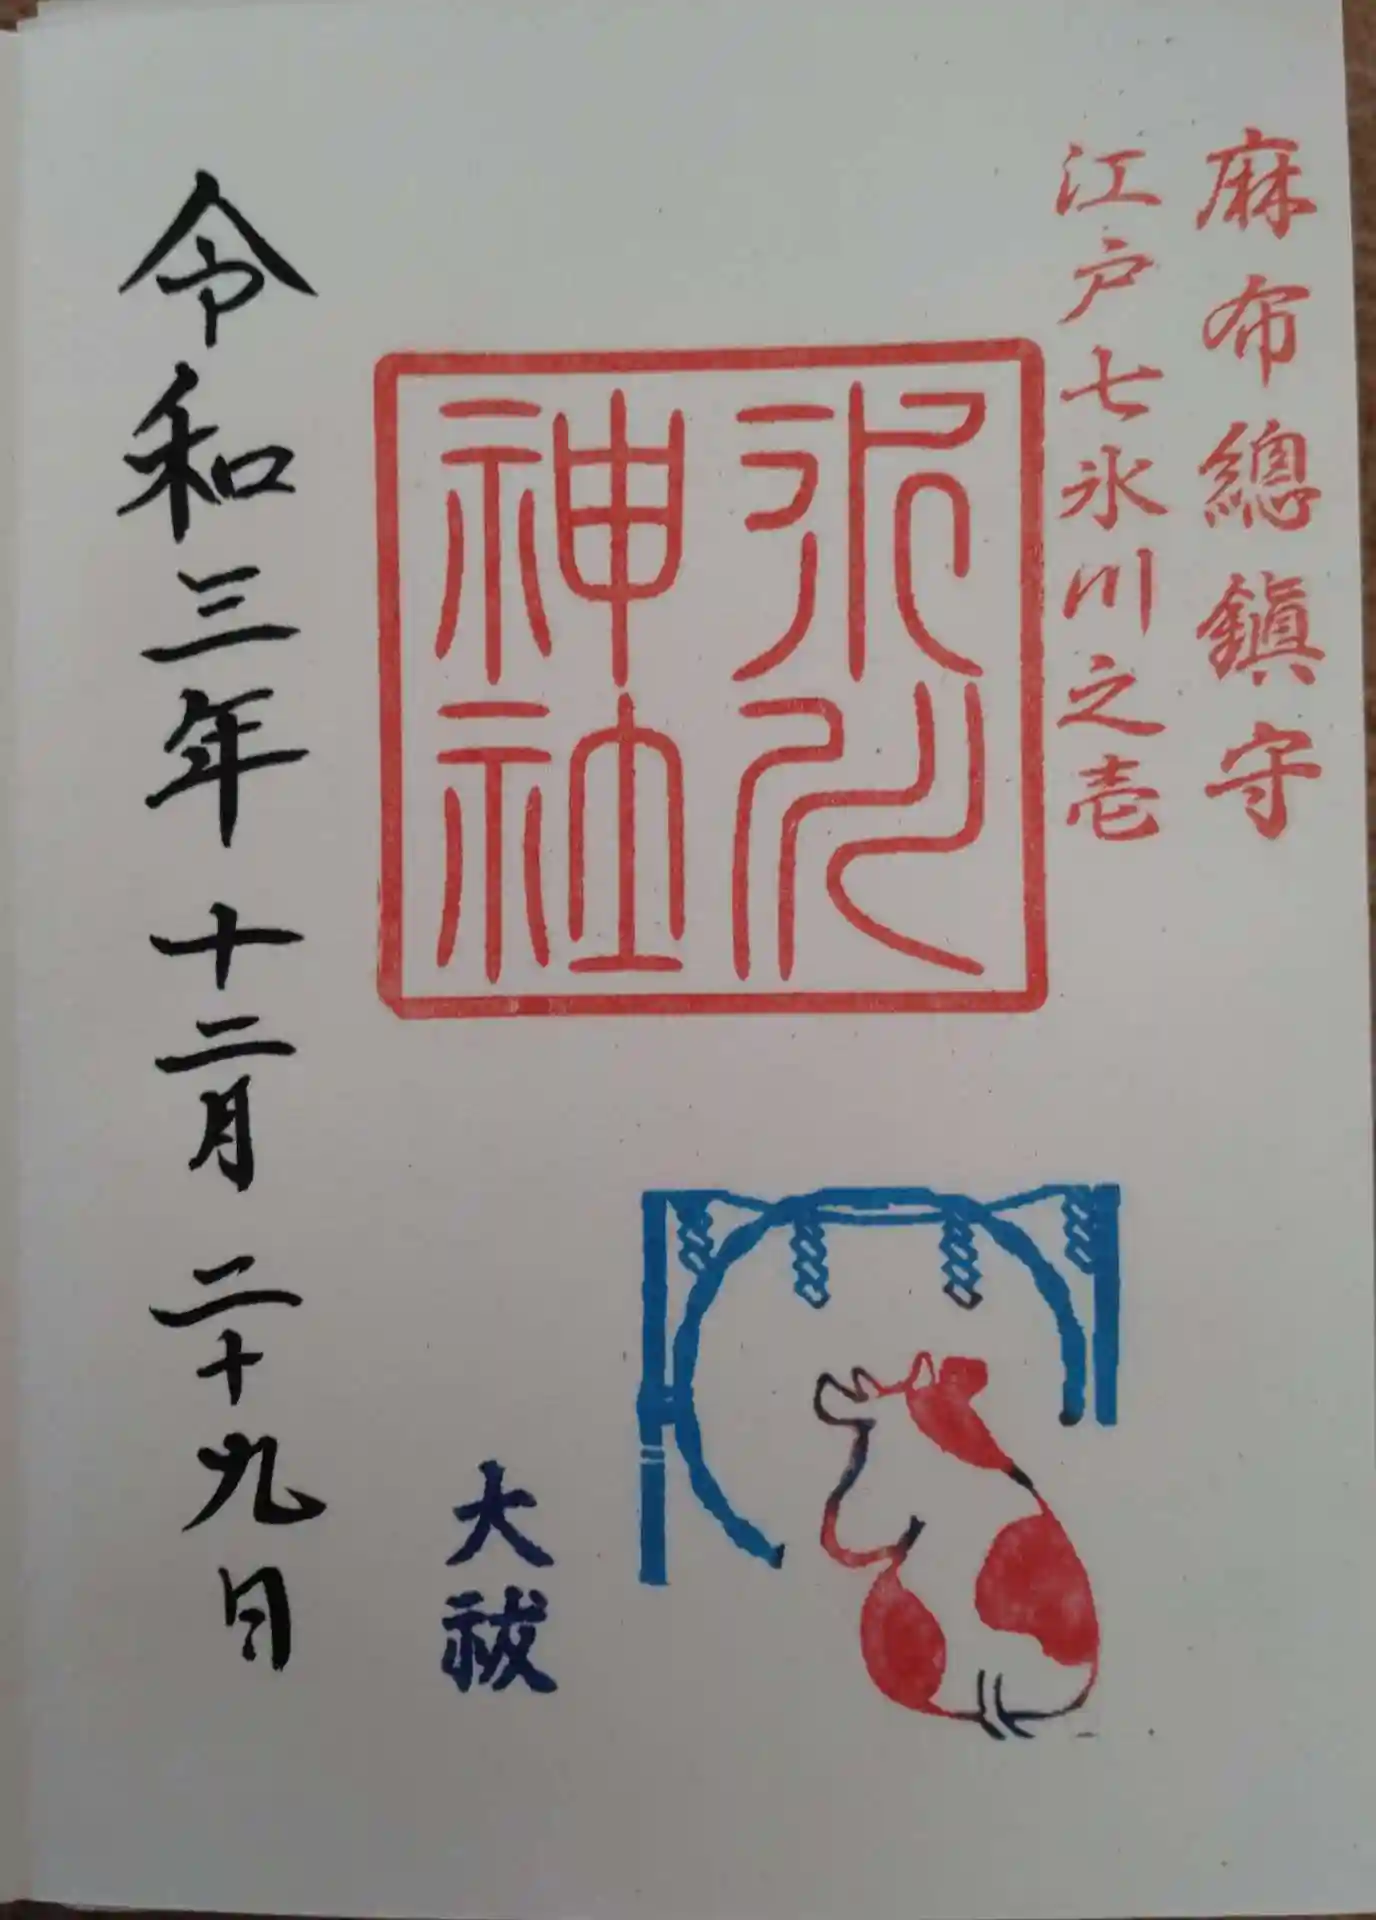 麻布總鎭守
江戸七氷川之壱
氷川
神社
大祓
令和三年十二月二十九日